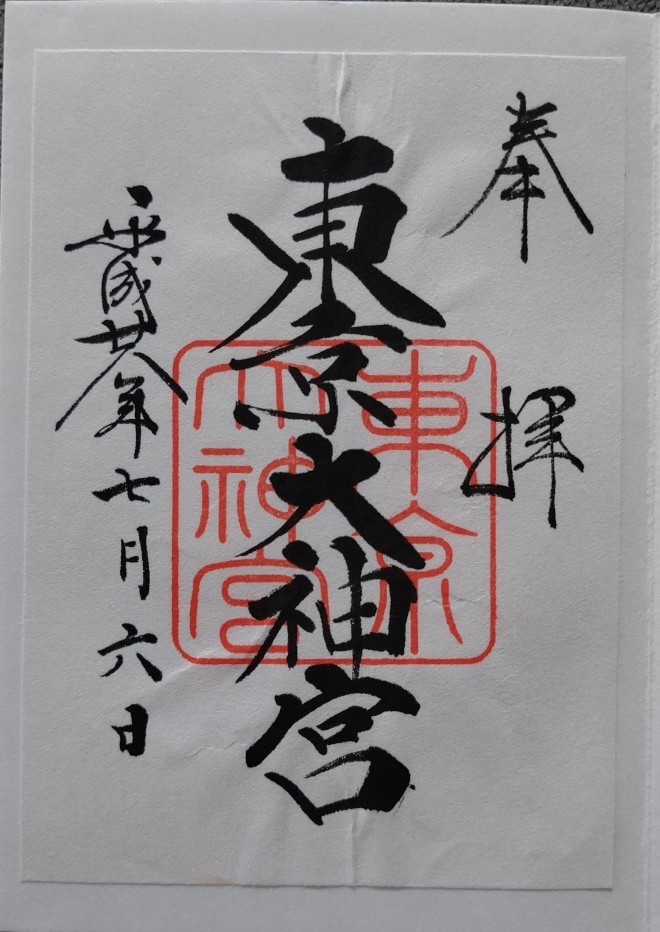 奉拝
東京大神宮
東京
大神宮
平成廿八年七月六日